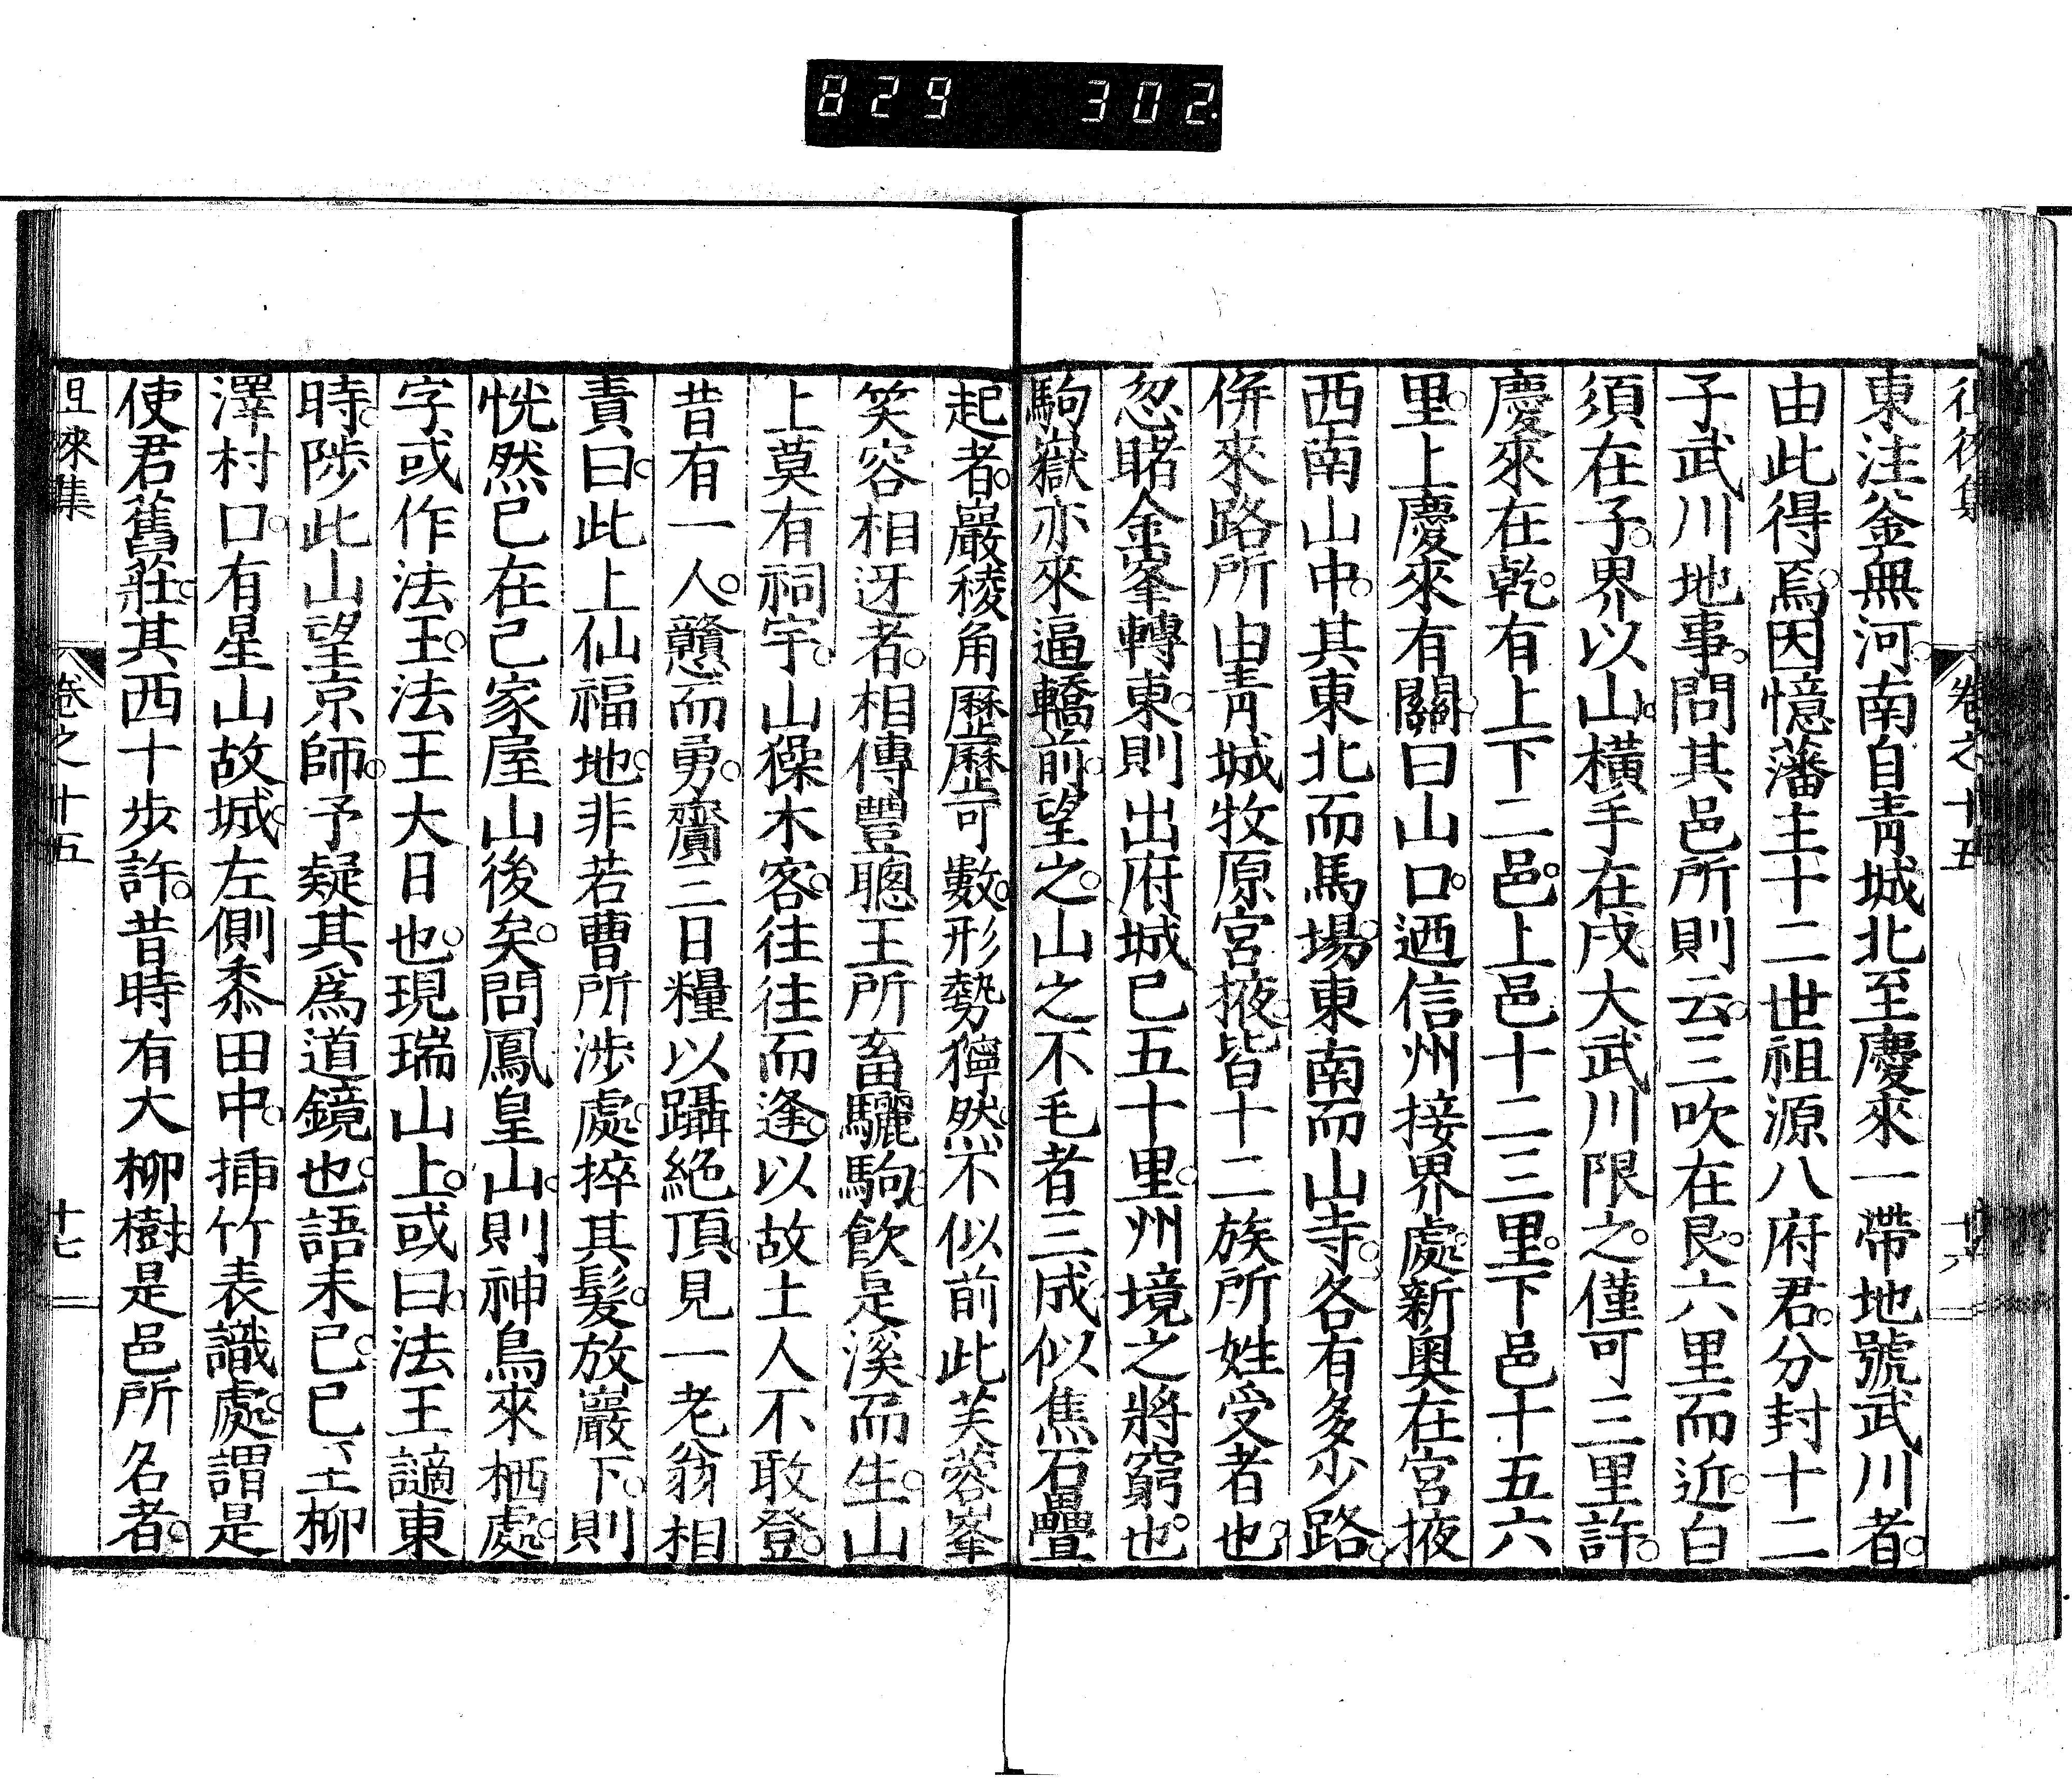 829 302
徂徠集 卷之十五
東注釜無河南自青城北至慶來一帶地號武川者。
由此得焉。因憶藩主十二世祖源八府君。分封十二
子武川地事。問其邑所則云。三吹在艮。六里而近。白
須在子。界以山。橫手在戌大武川限之。僅可三里許。
慶來在乾。有上下二邑。上邑十二三里。下邑十五六
里。上慶來有關。曰山口。迺信州接界處。新奧在宮掖
西南山中。其東北而馬場。東南而山寺。各有多少路。
併來路所由青城牧原宮掖。皆十二族所姓受者也。
忽睹金峯轉東。則出府城已五十里。州境之將窮也。
駒嶽亦來逼轎前。望之。山之不毛者三成。似焦石疊
起者。巖稜角歷歷可數。形勢獰然。不似前此芙蓉峯
笑容相迓者。相傳豐聰王所畜驪駒。飲是溪而生。山
上莫有祠宇。山𤢖木客。往往而逢。以故土人不敢登。
昔有一人。戇而勇。齎三日糧以躡絕頂。見一老翁相
責曰。此上仙福地。非若曹所涉處。捽其髮。放巖下。則
恍然已在己家屋山後矣。問鳳皇山。則神鳥來栖處。
字或作法王。法王大日也。現瑞山上。或曰。法王謫東
時。陟此山望京師。予疑其爲道鏡也。語未已。已至柳
澤村口。有星山故城。左側黍田中。插竹表識處。謂是
使君舊莊。其西十步許。昔時有大柳樹。是邑所名者。
徂徠集 卷之十五 十七